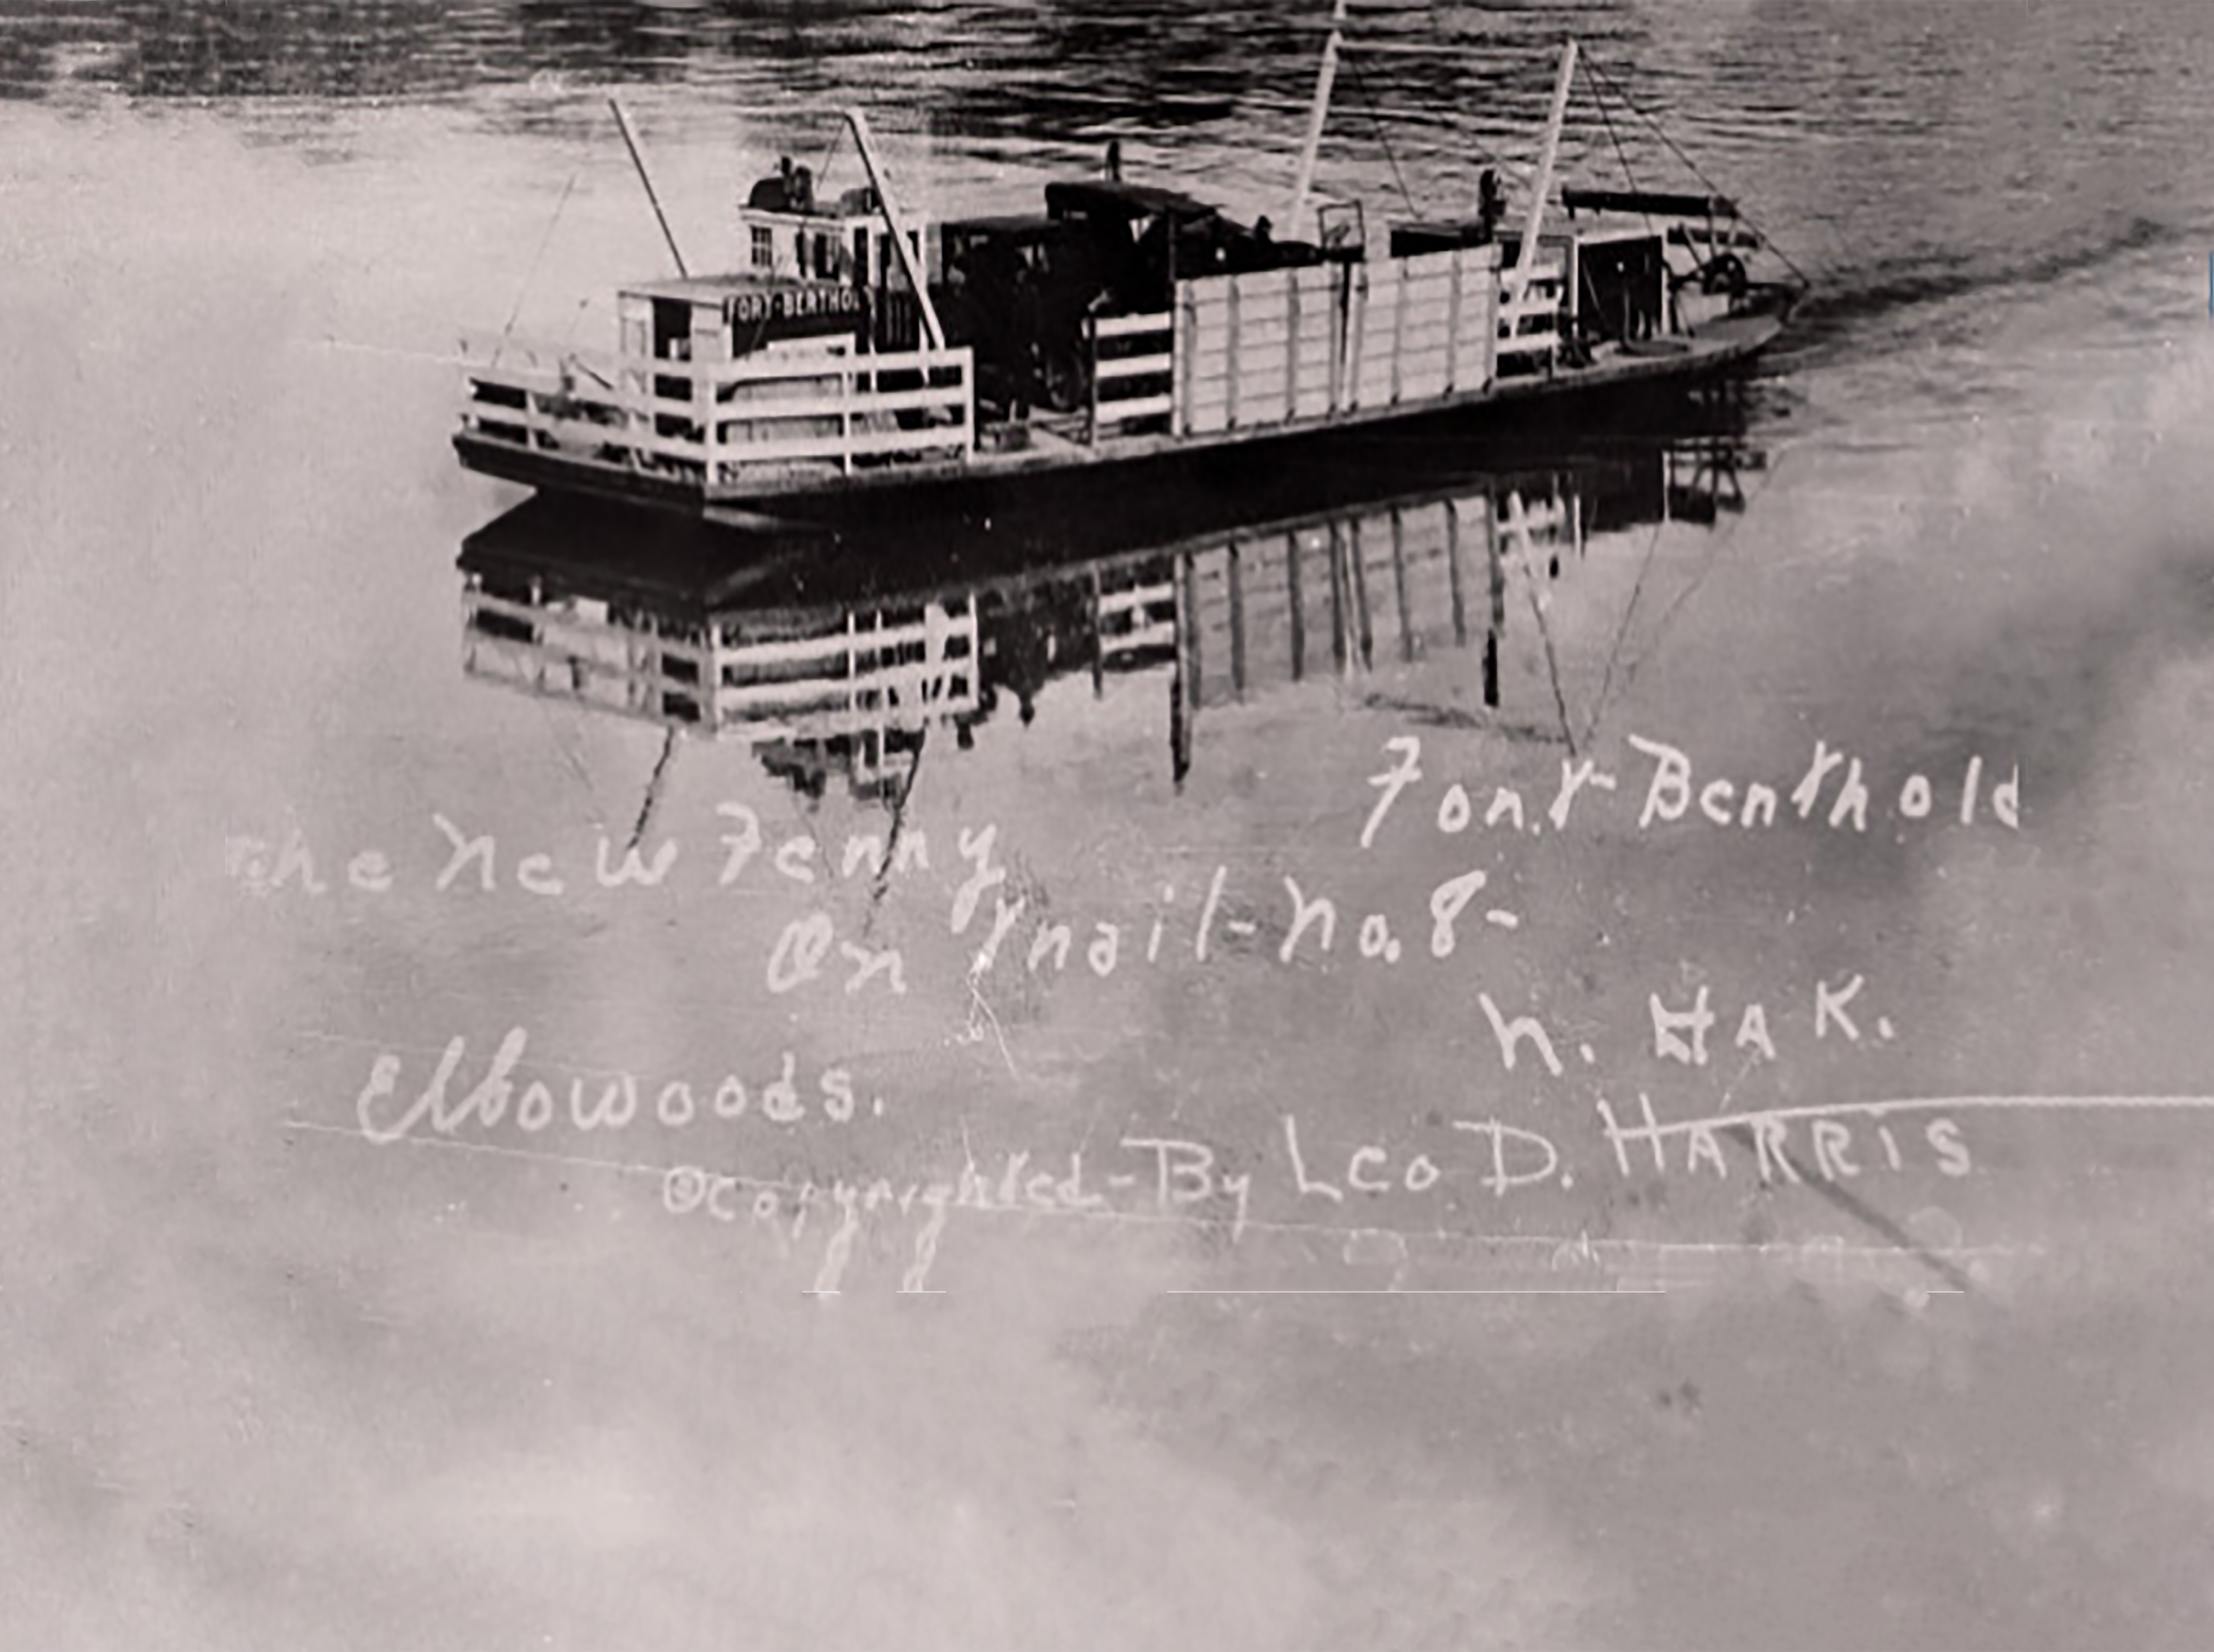 FORT-BERTHOL
The New Ferry Fort-Berthold
On Trail-No.8-
Elbowoods. N. HAK.
©Copyrighted-By Leo D. HARRIS